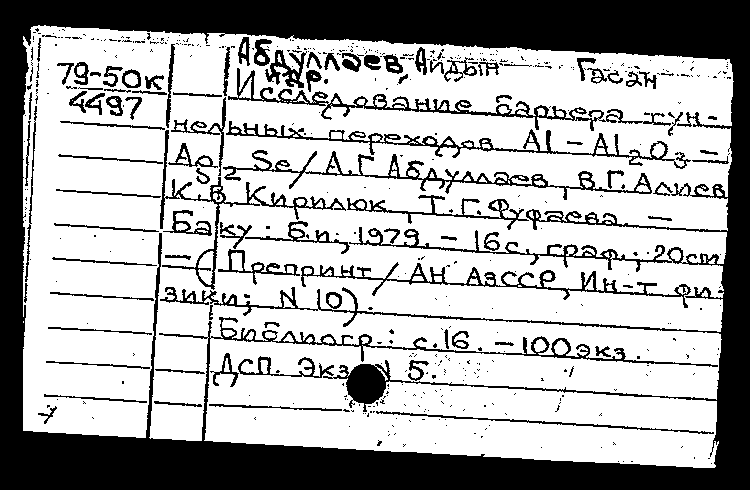 Абдуллаев, Айдын Гасан
кар.
79-50к
4497
Исследование барьера тун-
нельных переходов Al - Al2O3 -
Ag2 Se/ А.Г Абдуллаев, В.Г. Алиев
К.В. Кирилюк, Т.Г. Фуфаева. —
Баку: Б.и., 1979. - 16с., граф.; 20см
— (Препринт/ АН АзССР, Ин-т фи-
зики; N 10).
Библиогр.: с.16. - 100экз.
Дсп. Экз N 5.